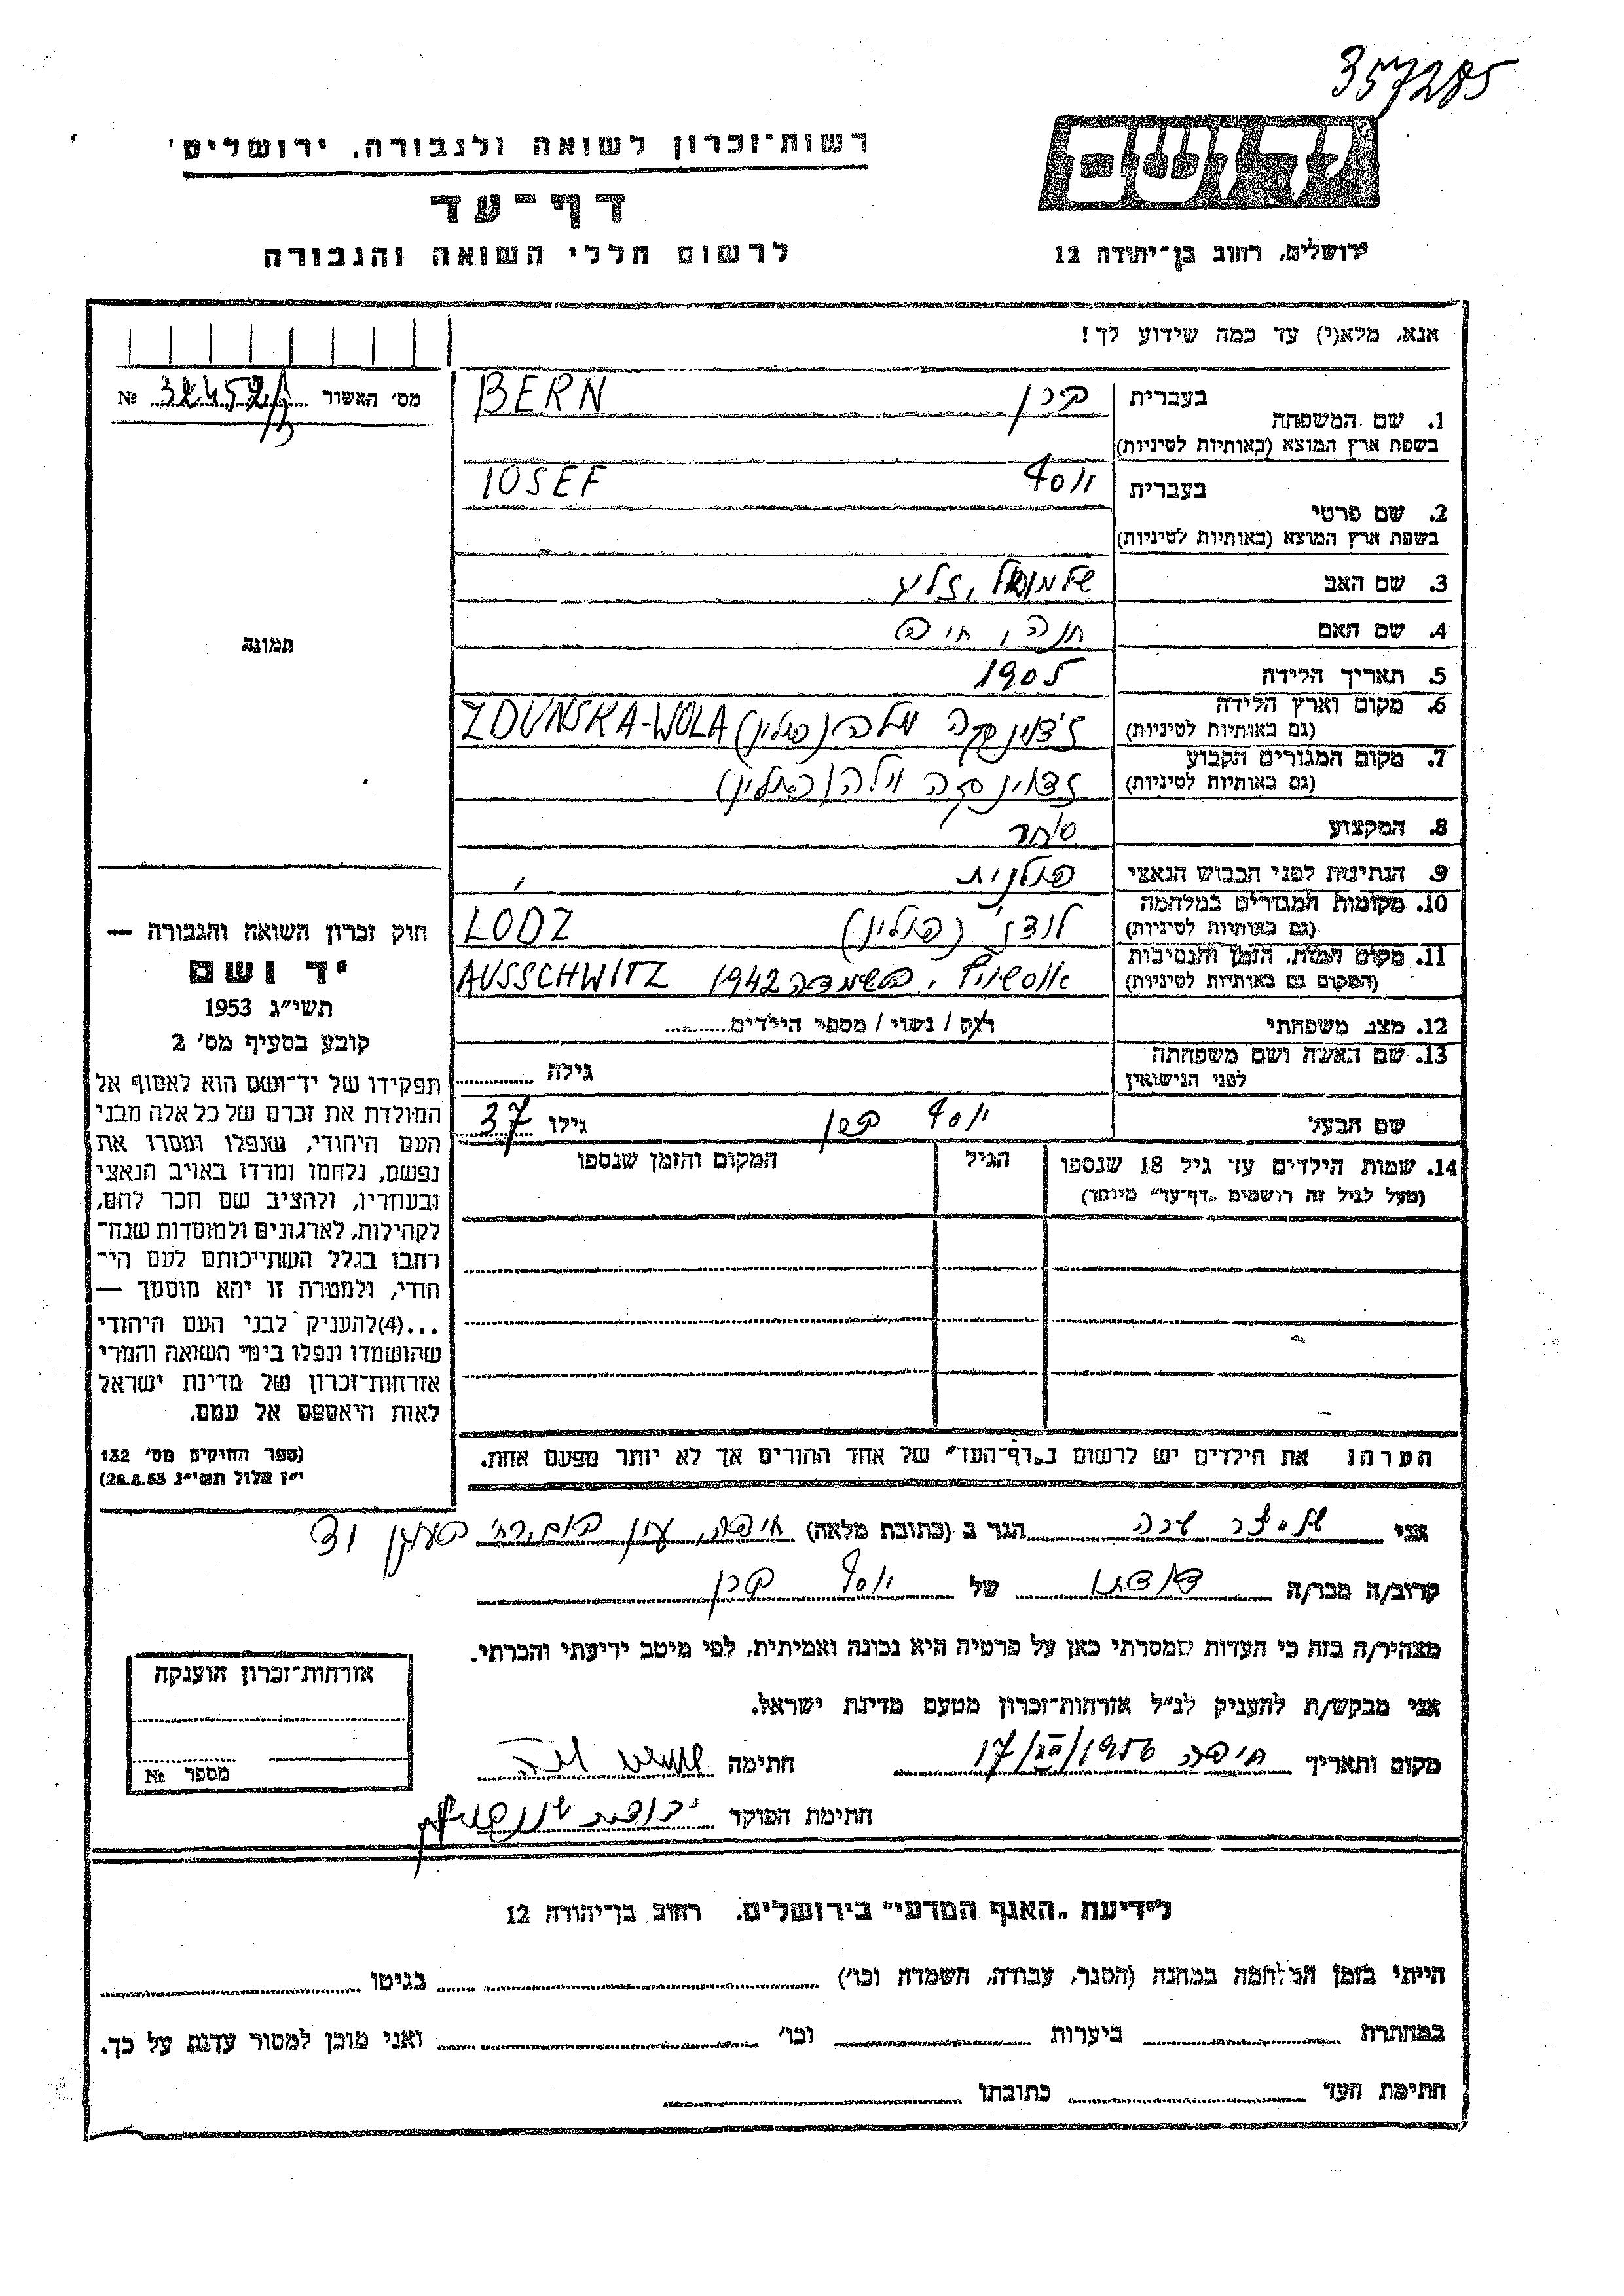 357285
יד ושם
רשות־זכרון לשואה ולגבורה, ירושלים
דף־עד
לרשום חללי השואה והגבורה
ירושלים, רחוב בן־יהודה 12
אנא, מלא(י) עד כמה שידוע לך!
מס׳ האשור № 32452
1. שם המשפחה בעברית ברן BERN
בשפת ארץ המוצא (באותיות לטיניות)
2. שם פרטי בעברית יוסף IOSEF
בשפת ארץ המוצא (באותיות לטיניות)
3. שם האב שלמואל, זליג
4. שם האם חנה, חיה
5. תאריך הלידה 1905
6. מקום וארץ הלידה (גם באותיות לטיניות) זדוינסקה וולה (פולין) ZDUNSKA-WOLA
7. מקום המגורים הקבוע (גם באותיות לטיניות) זדוינסקה וולה (פולין)
8. המקצוע סוחר
9. הנתינות לפני הכבוש הנאצי פולנית
10. מקומות המגורים במלחמה (גם באותיות לטיניות) לודז׳ (פולין) LODZ
11. מקום המות, הזמן והנסיבות (המקום גם באותיות לטיניות) אוסשויץ, בהשמדה 1942 AUSSCHWITZ
12. מצב משפחתי רוק / נשוי / מספר הילדים
13. שם האשה ושם משפחתה לפני הנישואין גילה
שם הבעל יוסף ברן גילו 37
14. שמות הילדים עד גיל 18 שנספו הגיל המקום והזמן שנספו
(מעל לגיל זה רושמים „דף־עד״ מיוחד)
הערה: את הילדים יש לרשום ב„דף־העד״ של אחד ההורים אך לא יותר מפעם אחת.
תמונה
חוק זכרון השואה והגבורה —
יד ושם
תשי״ג 1953
קובע בסעיף מס׳ 2
תפקידו של יד־ושם הוא לאסוף אל
המולדת את זכרם של כל אלה מבני
העם היהודי, שנפלו ומסרו את
נפשם, נלחמו ומרדו באויב הנאצי
ובעוזריו, ולהציב שם וזכר להם,
לקהילות, לארגונים ולמוסדות שנח־
רבו בגלל השתייכותם לעם הי־
הודי, ולמטרה זו יהא מוסמך —
...(4) להעניק לבני העם היהודי
שהושמדו ונפלו בימי השואה והמרי
אזרחות־זכרון של מדינת ישראל
לאות היאספם אל עמם.
(ספר החוקים מס׳ 132
י״ז אלול תשי״ג 28.8.53)
אני שרה הגר ב (כתובת מלאה) חיפה,
קרוב/ה מכר/ה דודתו של יוסף ברן
מצהיר/ה בזה כי העדות שמסרתי כאן על פרטיה היא נכונה ואמיתית, לפי מיטב ידיעתי והכרתי.
אני מבקש/ת להעניק לנ״ל אזרחות־זכרון מטעם מדינת ישראל.
מקום ותאריך חיפה 17/XII/1956 חתימה
חתימת הפוקד יהודית
אזרחות־זכרון הוענקה
מספר №
לידיעת „האגף המדעי״ בירושלים, רחוב בן־יהודה 12
הייתי בזמן המלחמה במחנה (הסגר, עבודה, השמדה וכו׳) בגיטו
במחתרת ביערות וכו׳ ואני מוכן למסור עדות על כך.
חתימת העד כתובתו